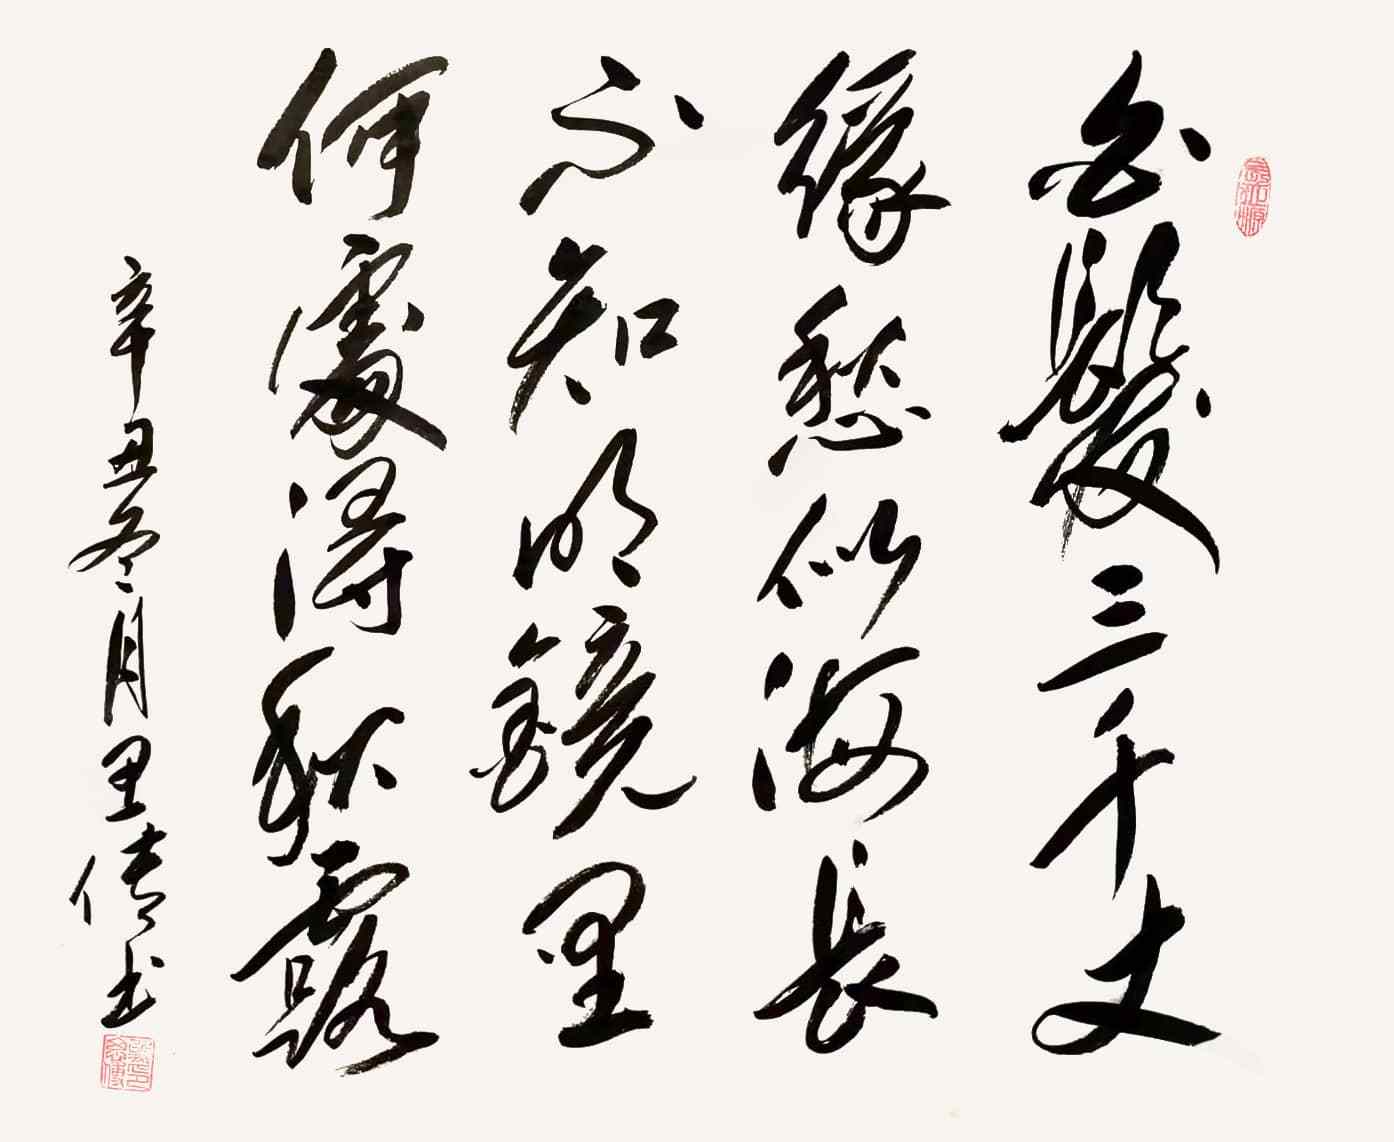 白髮三千丈
緣愁似海長
不知明鏡里
何處得秋露
辛丑冬月书